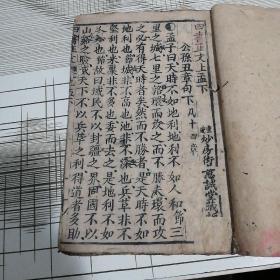 四書正文上孟下
公孫丑章句下 凡十四章
孟子曰天時不如地利地利不如人和節三
里之城七里之郭環而攻之而不勝夫環而攻
之必有得天時者矣然而不勝者是天時不如
地利也節城非不高也池非不深也兵革非不
堅利也米粟非不多也委而去之是地利不如
人和也節故曰域民不以封疆之界固國不以
山谿之險威天下不以兵革之利得道者多助